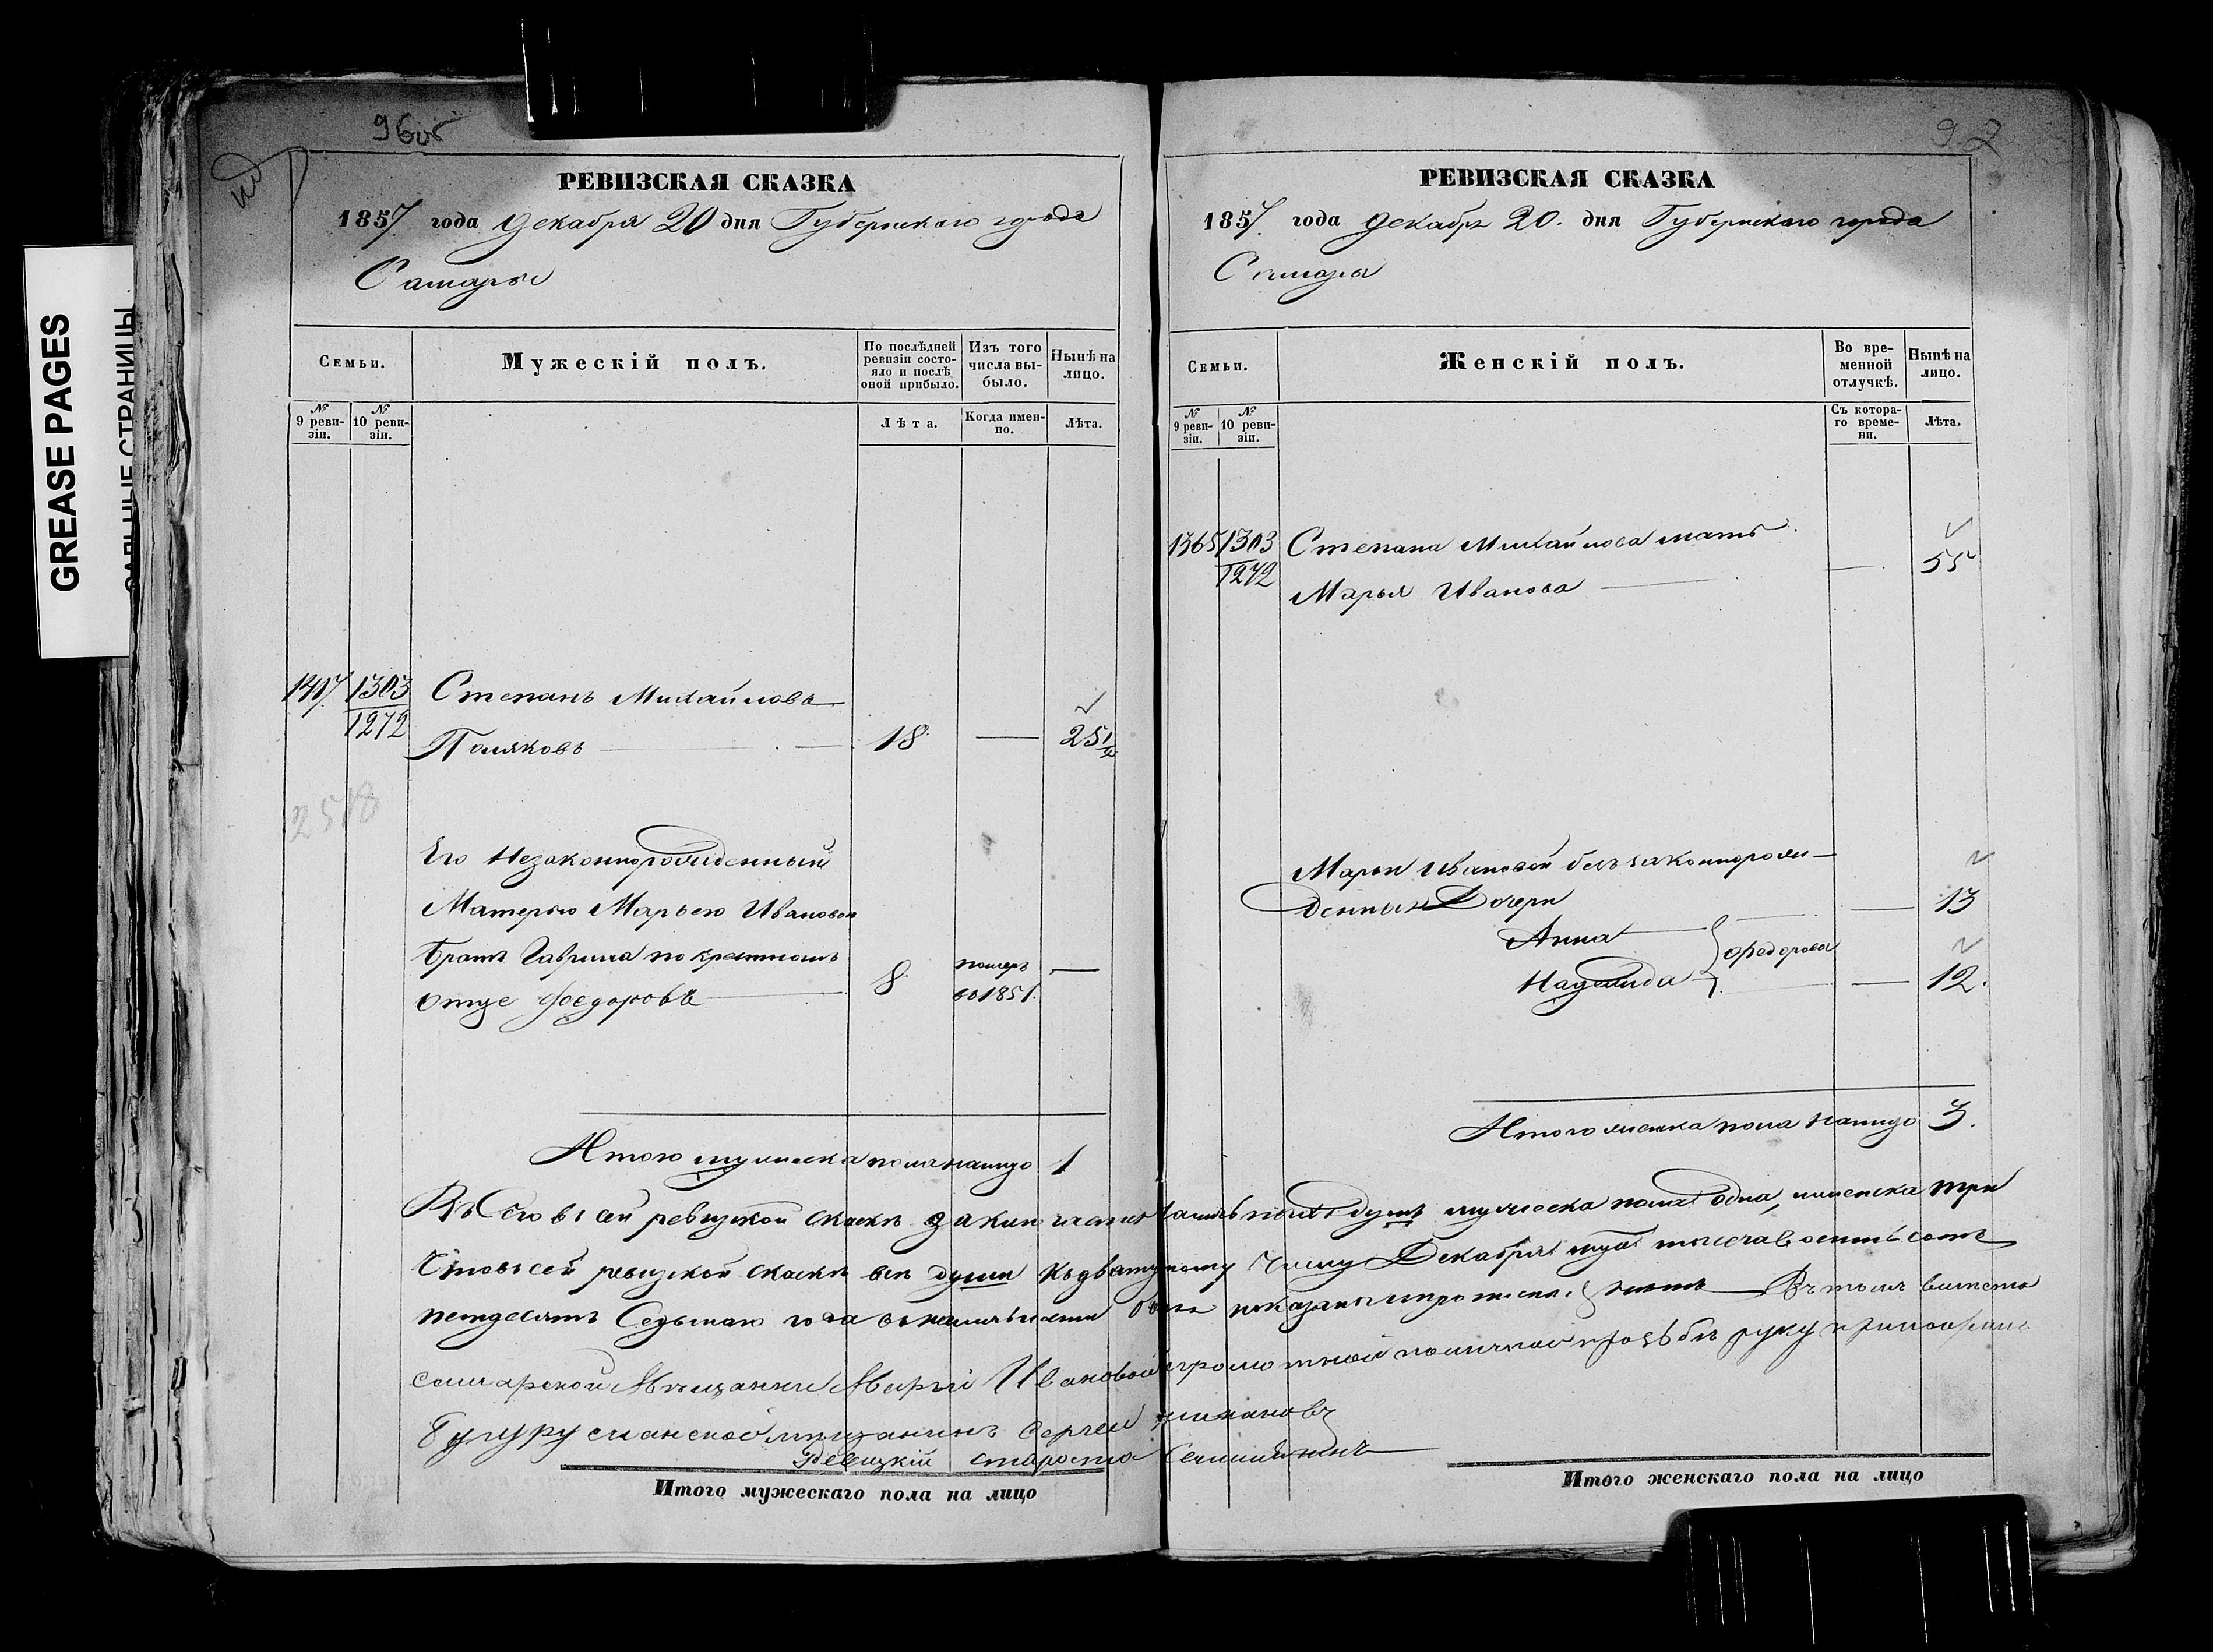 GREASE PAGES
САЛЬНЫЕ СТРАНИЦЫ
96об
РЕВИЗСКАЯ СКАЗКА
1857 года Декабря 20 дня Губернскаго города
Самары
Семьи.
Мужескій полъ.
По послѣдней ревизіи состояло и послѣ оной прибыло.
Изъ того числа выбыло.
Нынѣ на лицо.
№ 9 ревизіи.
№ 10 ревизіи.
Лѣта.
Когда именно.
Лѣта.
1407 1303 Степанъ Михайловъ
1272 Поляковъ — 18 — 25 1/2
2578
Его Незаконнорожденный
Матерью Марьею Ивановой
Братъ Гаврила по крестномъ
отце Федоровъ — 8 померъ во 1851. —
Итого мужеска пола налицо 1
97
РЕВИЗСКАЯ СКАЗКА
1857. года Декабря 20. дня Губернскаго города
Самары
Семьи.
Женскій полъ.
Во временной отлучкѣ.
Нынѣ на лицо.
№ 9 ревизіи.
№ 10 ревизіи.
Съ котораго времени.
Лѣта.
1365 1303 Степана Михайлова мать
1272 Марья Иванова — 55
Марьи Ивановой безъзаконнорож-
денныя Дочери — 13
Анна
Надежда } Федорова — 12.
Итого женска пола налицо 3.
Всего въ сей ревизкой скаскѣ душъ мужеска пола одна, женска три
Что въ сей ревизкой скаскѣ все души къ двадцатому числу Декабря тысяча восемь сотъ
петдесятъ Седьмаго года въ показаны Въ томъ вместо
самарской Мѣщанки Марьи Ивановой личной прозьбѣ руку приложилъ
Бугурусланской мещанинъ Сергей
Ревизкій староста
Итого мужескаго пола на лицо
Итого женскаго пола на лицо